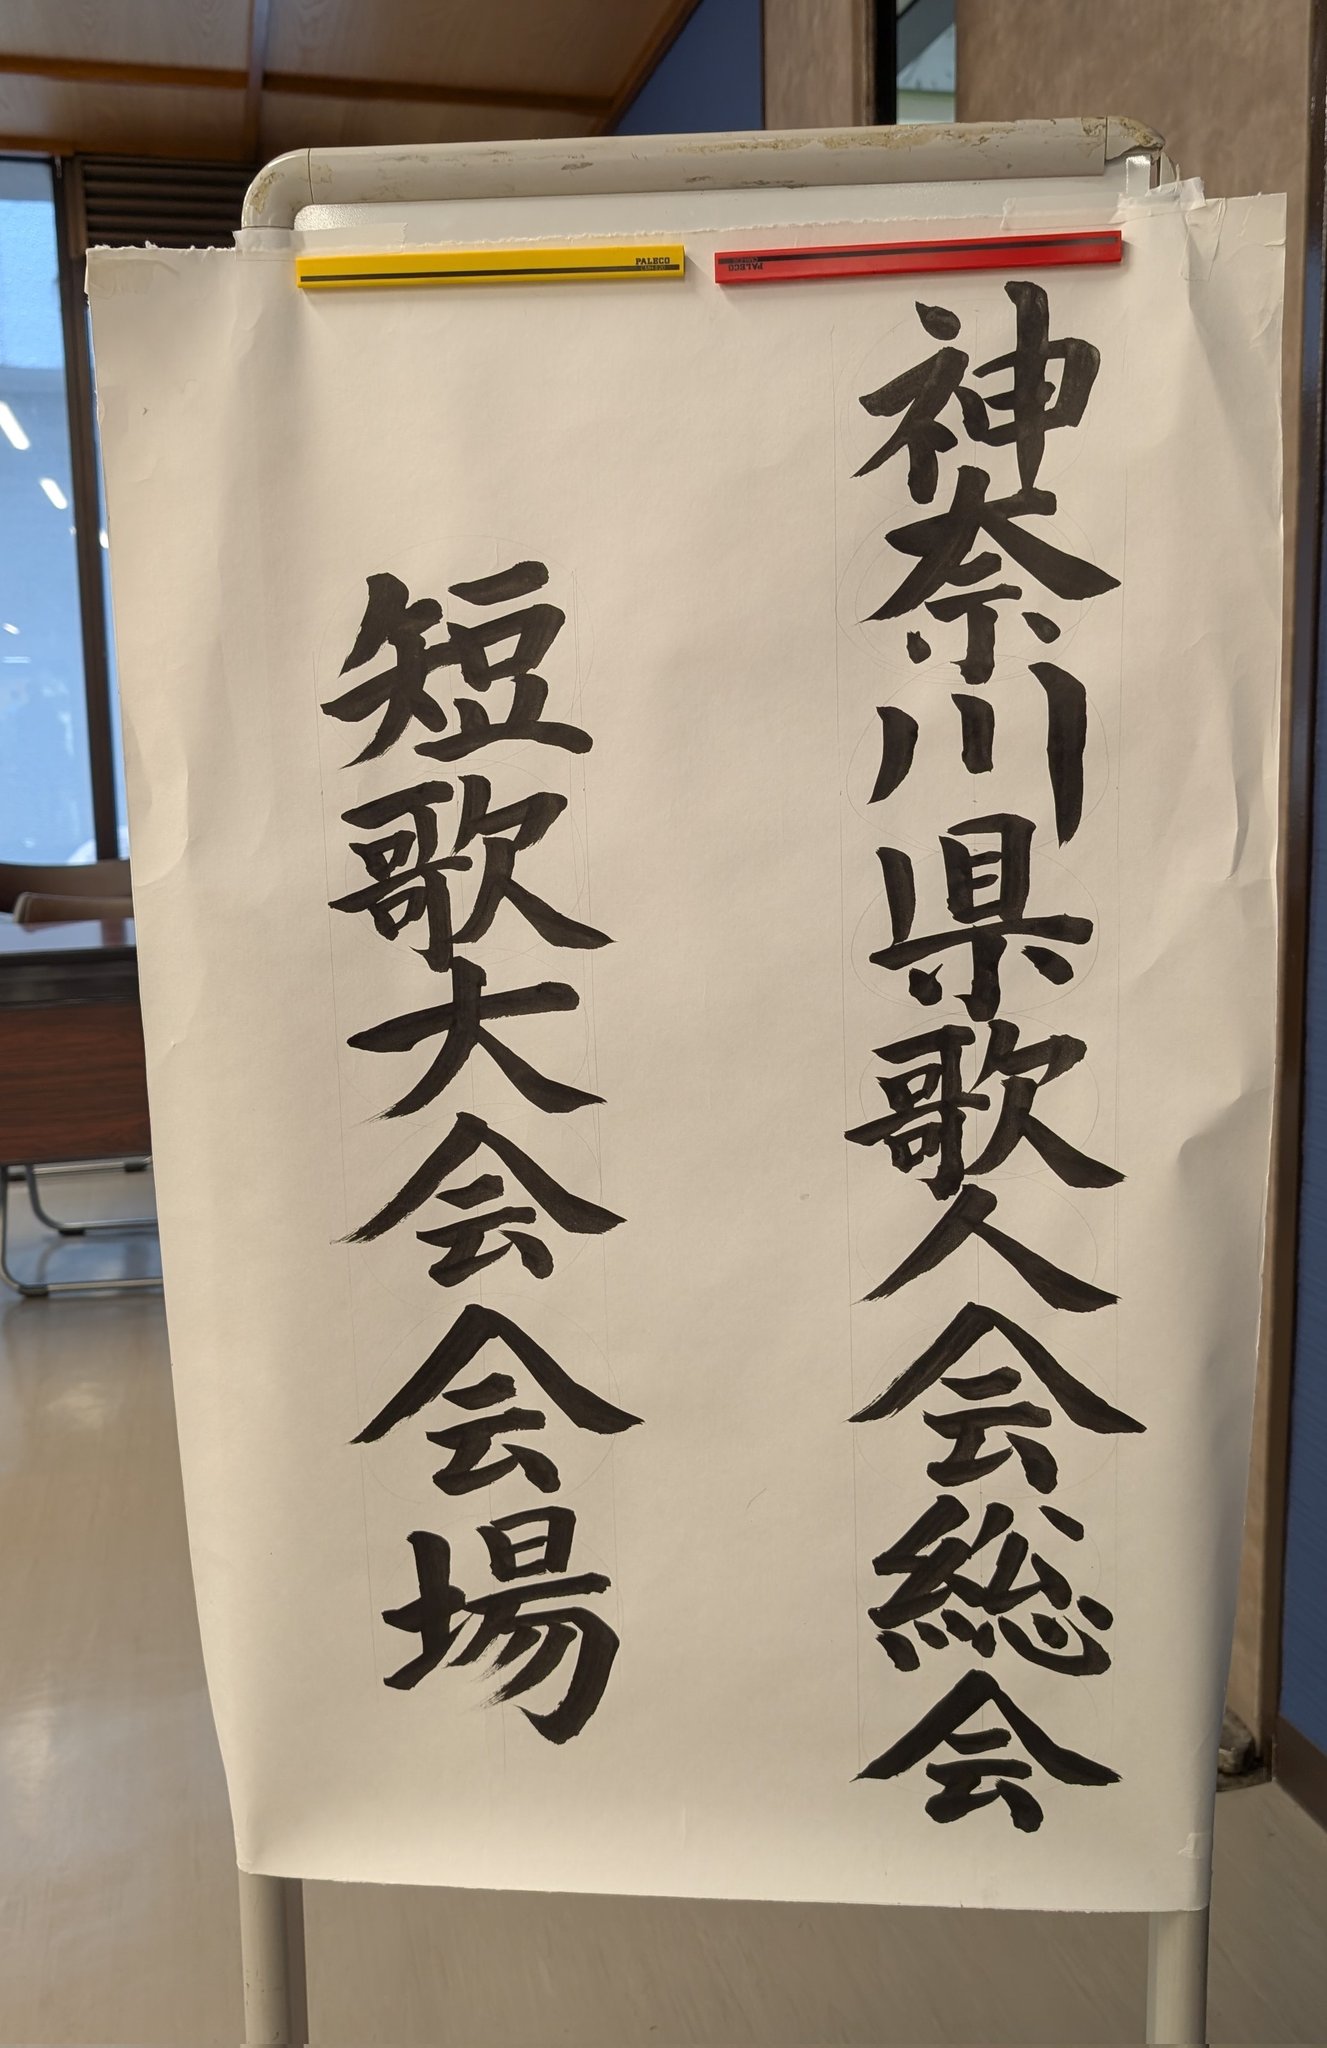 神奈川県歌人会総会
短歌大会会場
PALECO
PALECO